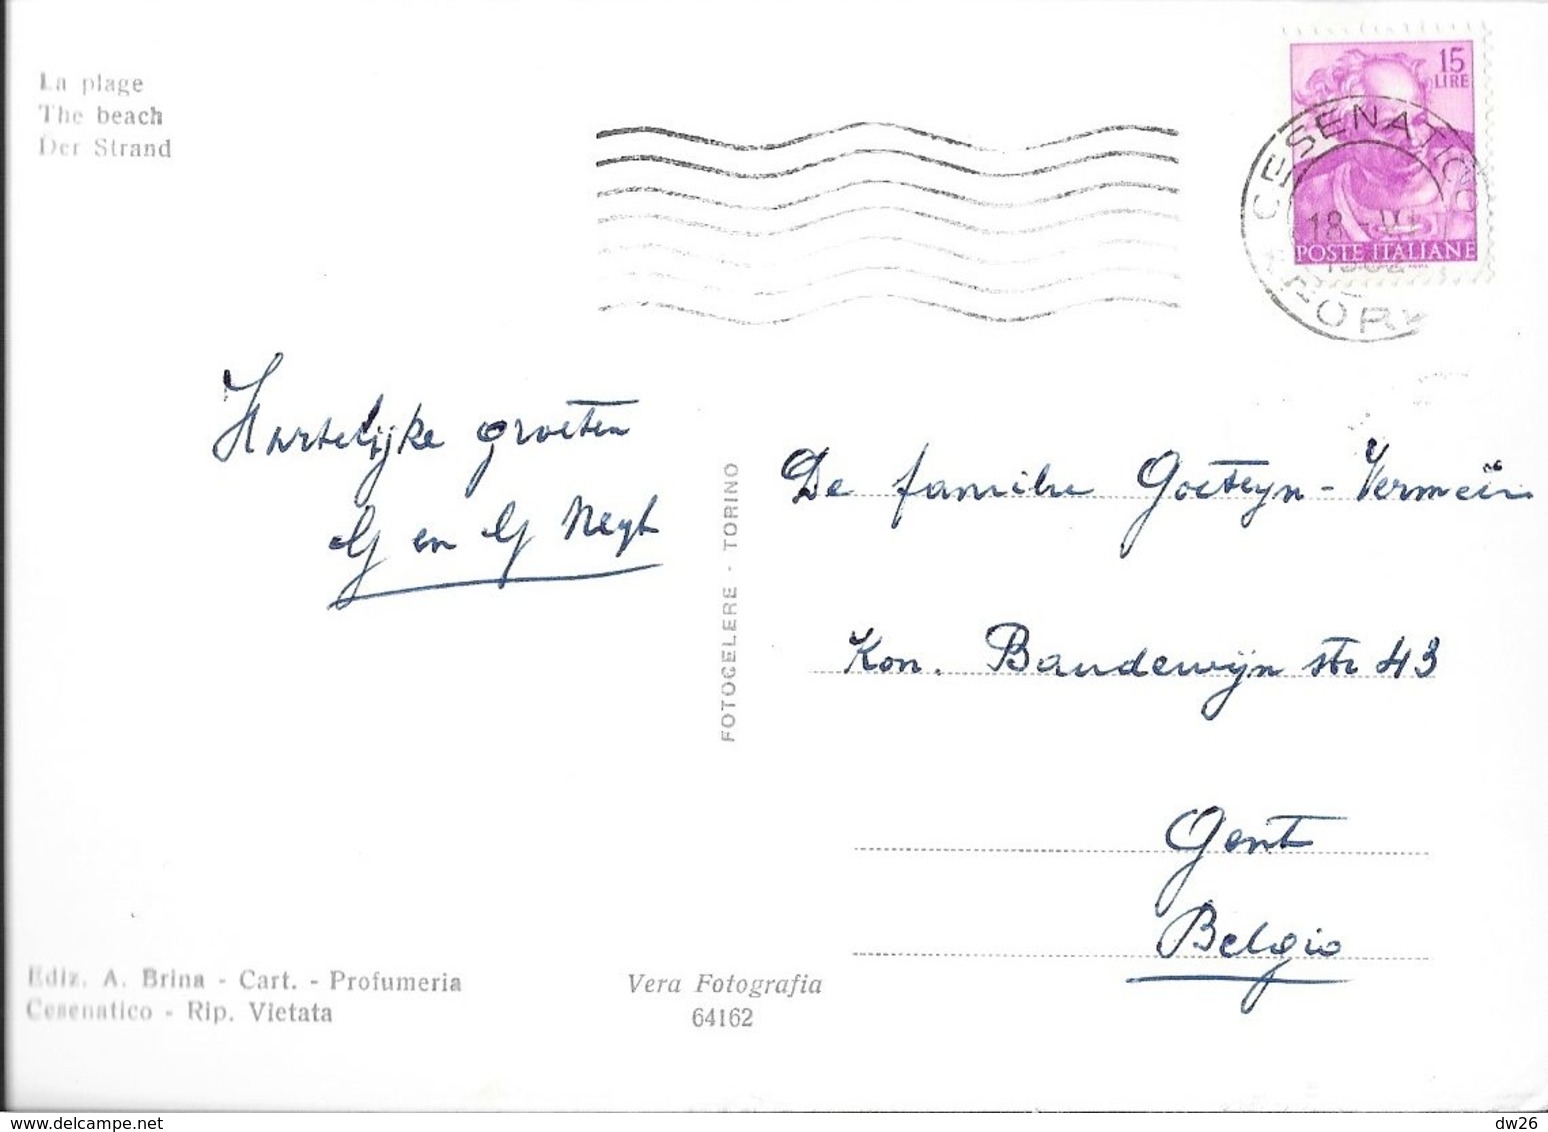 La plage
The beach
Der Strand
15
LIRE
POSTE ITALIANE
CESENATICO
18
Hartelijke groeten
G en G Neyt
De familie Goeteyn - Vermeir
Kon. Baudewijn str 43
Gent
Belgio
FOTOCELERE - TORINO
Ediz. A. Brina - Cart. - Profumeria
Cesenatico - Rip. Vietata
Vera Fotografia
64162
dw26